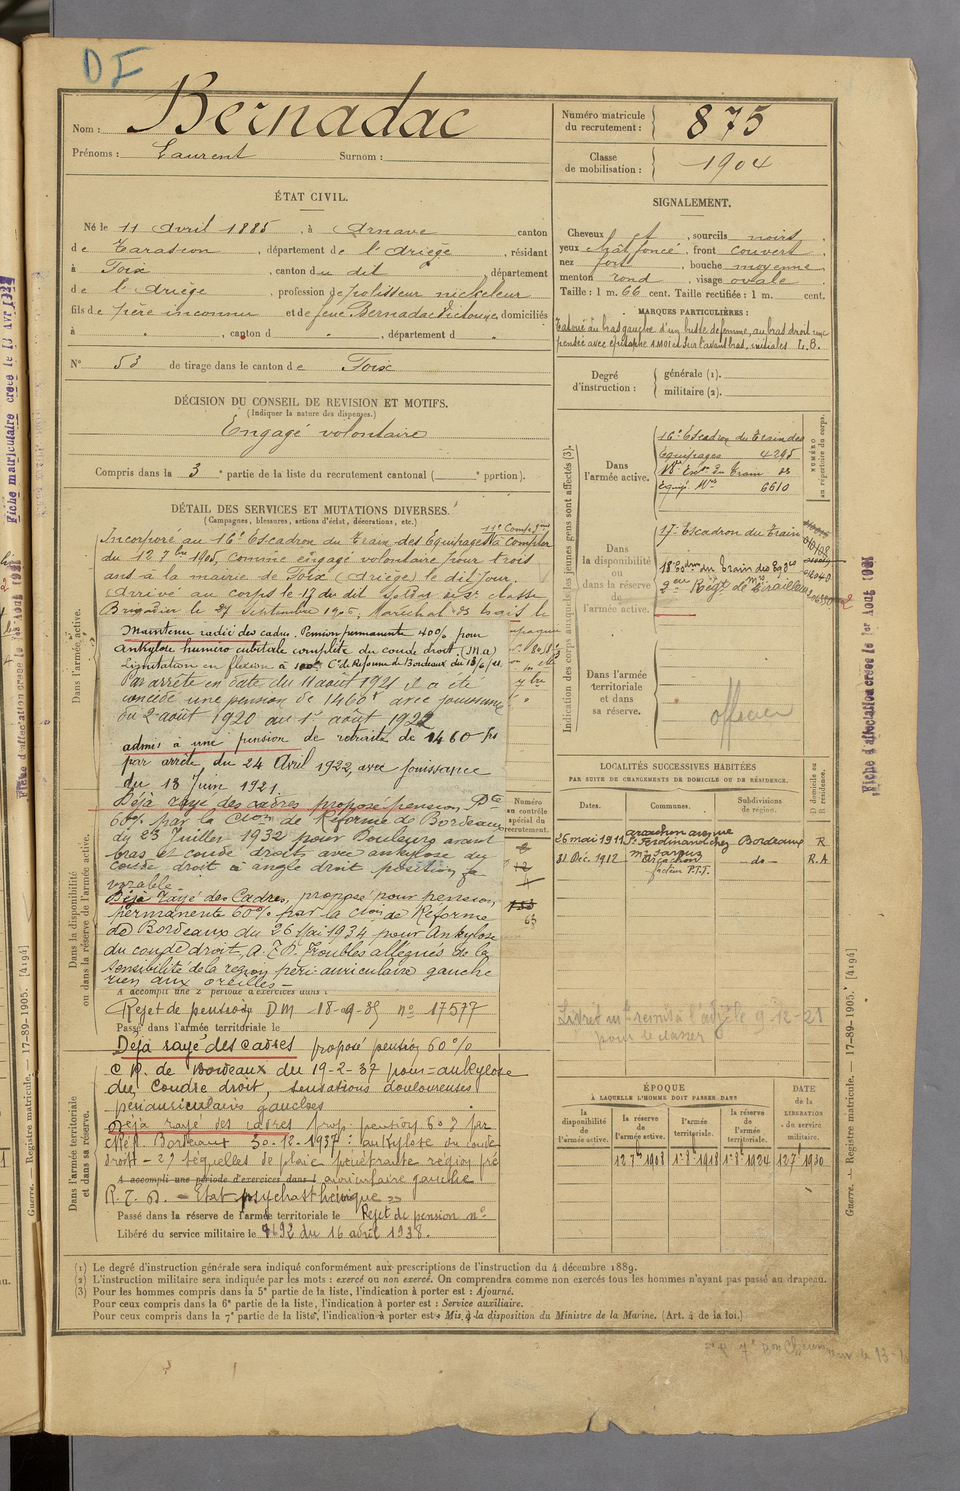 DF
Nom : Bernadac
Prénoms : Laurent Surnom :
Numéro matricule du recrutement : 875
Classe de mobilisation : 1904
ÉTAT CIVIL.
Né le 11 Avril 1885, à Arnave canton
de Tarascon, département de l'Ariège, résidant
à Foix, canton du dit, département
de l'Ariège, profession de polisseur nickeleur
fils de père inconnu et de feue Bernadac Victorine, domiciliés
à , canton d , département d
N° 53 de tirage dans le canton de Foix
SIGNALEMENT.
Cheveux et, sourcils noirs,
yeux chât foncé, front couvert,
nez fort, bouche moyenne,
menton rond, visage ovale.
Taille : 1 m. 66 cent. Taille rectifiée : 1 m. cent.
MARQUES PARTICULIÈRES :
Tatoué au bras gauche d'un buste de femme, au bras droit une
pensée avec épitaphe A MOI et sur l'avant bras, initiales L.B.
Degré d'instruction : générale (1).
militaire (2).
DÉCISION DU CONSEIL DE REVISION ET MOTIFS.
(Indiquer la nature des dispenses.)
Engagé volontaire
Compris dans la 3e partie de la liste du recrutement cantonal ( e portion).
DÉTAIL DES SERVICES ET MUTATIONS DIVERSES.
(Campagnes, blessures, actions d'éclat, décorations, etc.)
Dans l'armée active.
11e Compagnie
Incorporé au 16e Escadron du Train des Equipages à compter
du 12 7bre 1905, comme engagé volontaire pour trois
ans à la mairie de Foix (Ariège) le dit jour.
Arrivé au corps le 13 du dit Soldat de 2e classe
Brigadier le 27 septembre 1906, Maréchal des logis le
Maintenu radié des cadres. Pension permanente 40% pour
ankylose huméro cubitale complète du coude droit. (M.a)
Limitation en flexion à Con de Réforme de Bordeaux du 13/6/21.
Par arrêté en date du 11 août 1921 il a été
concédé une pension de 1460f avec jouissance
du 2 août 1920 au 1er août 1922
admis à une pension de retraite de 1460 frs
par arrêté du 24 Avril 1922, avec jouissance
du 13 Juin 1921.
Déjà rayé des cadres proposé pension Pte
60% par la Cion de Réforme de Bordeaux
du 23 Juillet 1932 pour Douleurs avant
bras et coude droits avec ankylose du
coude droit à angle droit position fa-
vorable.
Déjà rayé des Cadres, proposé pour pension
permanente 60% par la Cion de Réforme
de Bordeaux du 26 Mai 1934 pour Ankylose
du coude droit, A.P.D. Troubles allégués de la
sensibilité de la région péri-auriculaire gauche
rien aux oreilles.
Dans la disponibilité ou dans la réserve de l'armée active.
A accompli une 2e période d'exercices dans l
Rejet de pension DM 18-09-35 no 17577
Passé dans l'armée territoriale le
Déjà rayé des cadres proposé pension 60%
C.R. de Bordeaux du 19-2-37 pour = ankylose
du coudre droit, sensations douloureuses
périauriculaires gauches
Déjà rayé des cadres prop. pension 60% par
C.Réf. Bordeaux 30-12-1937 : ankylose du coude
droit - 2° séquelles de plaie pénétrante région pré
A accompli une période d'exercices dans l auriculaire gauche
P.T.D. = Etat psychasthénique »
Dans l'armée territoriale et dans sa réserve.
Passé dans la réserve de l'armée territoriale le Rejet de pension no
Libéré du service militaire le 9692 du 16 avril 1938.
Numéro au contrôle spécial du recrutement.
12
63
Indication des corps auxquels les jeunes gens sont affectés (3).
NUMÉRO au répertoire du corps.
Dans l'armée active. 16e Escadron du Train des
Équipages 4295
6610
Dans la disponibilité ou dans la réserve de l'armée active. 17e Escadron du Train
18e Esdron du Train des Eqges
Dans l'armée territoriale et dans sa réserve. officier
LOCALITÉS SUCCESSIVES HABITÉES
PAR SUITE DE CHANGEMENTS DE DOMICILE OU DE RÉSIDENCE.
Dates. Communes. Subdivisions de région. D domicile ou R résidence.
26 mai 1911 Arcachon avenue St Ferdinand chez Bordeaux R
31 Déc. 1912 Arcachon facteur P.T.T. -do- R.A
Livret mle remis à l' le 9-12-21
pour le classer
ÉPOQUE
À LAQUELLE L'HOMME DOIT PASSER DANS
la disponibilité de l'armée active. la réserve de l'armée active. l'armée territoriale. la réserve de l'armée territoriale. DATE de la LIBÉRATION du service militaire.
12 7bre 1908 1er 8bre 1918 1er 8bre 1924 12 7bre 1930
(1) Le degré d'instruction générale sera indiqué conformément aux prescriptions de l'instruction du 4 décembre 1889.
(2) L'instruction militaire sera indiquée par les mots : exercé ou non exercé. On comprendra comme non exercés tous les hommes n'ayant pas passé au drapeau.
(3) Pour les hommes compris dans la 5e partie de la liste, l'indication à porter est : Ajourné.
Pour ceux compris dans la 6e partie de la liste, l'indication à porter est : Service auxiliaire.
Pour ceux compris dans la 7e partie de la liste, l'indication à porter est : Mis à la disposition du Ministre de la Marine. (Art. 4 de la loi.)
Guerre. — Registre matricule. — 17-89-1905. [4194]
Guerre. — Registre matricule. — 17-89-1905. [4194]
Fiche d'affectation créée le 1er Aout 1921
Fiche matriculaire créée le 13 Avr
Fiche d'affectation créée le 1er Aout 1921